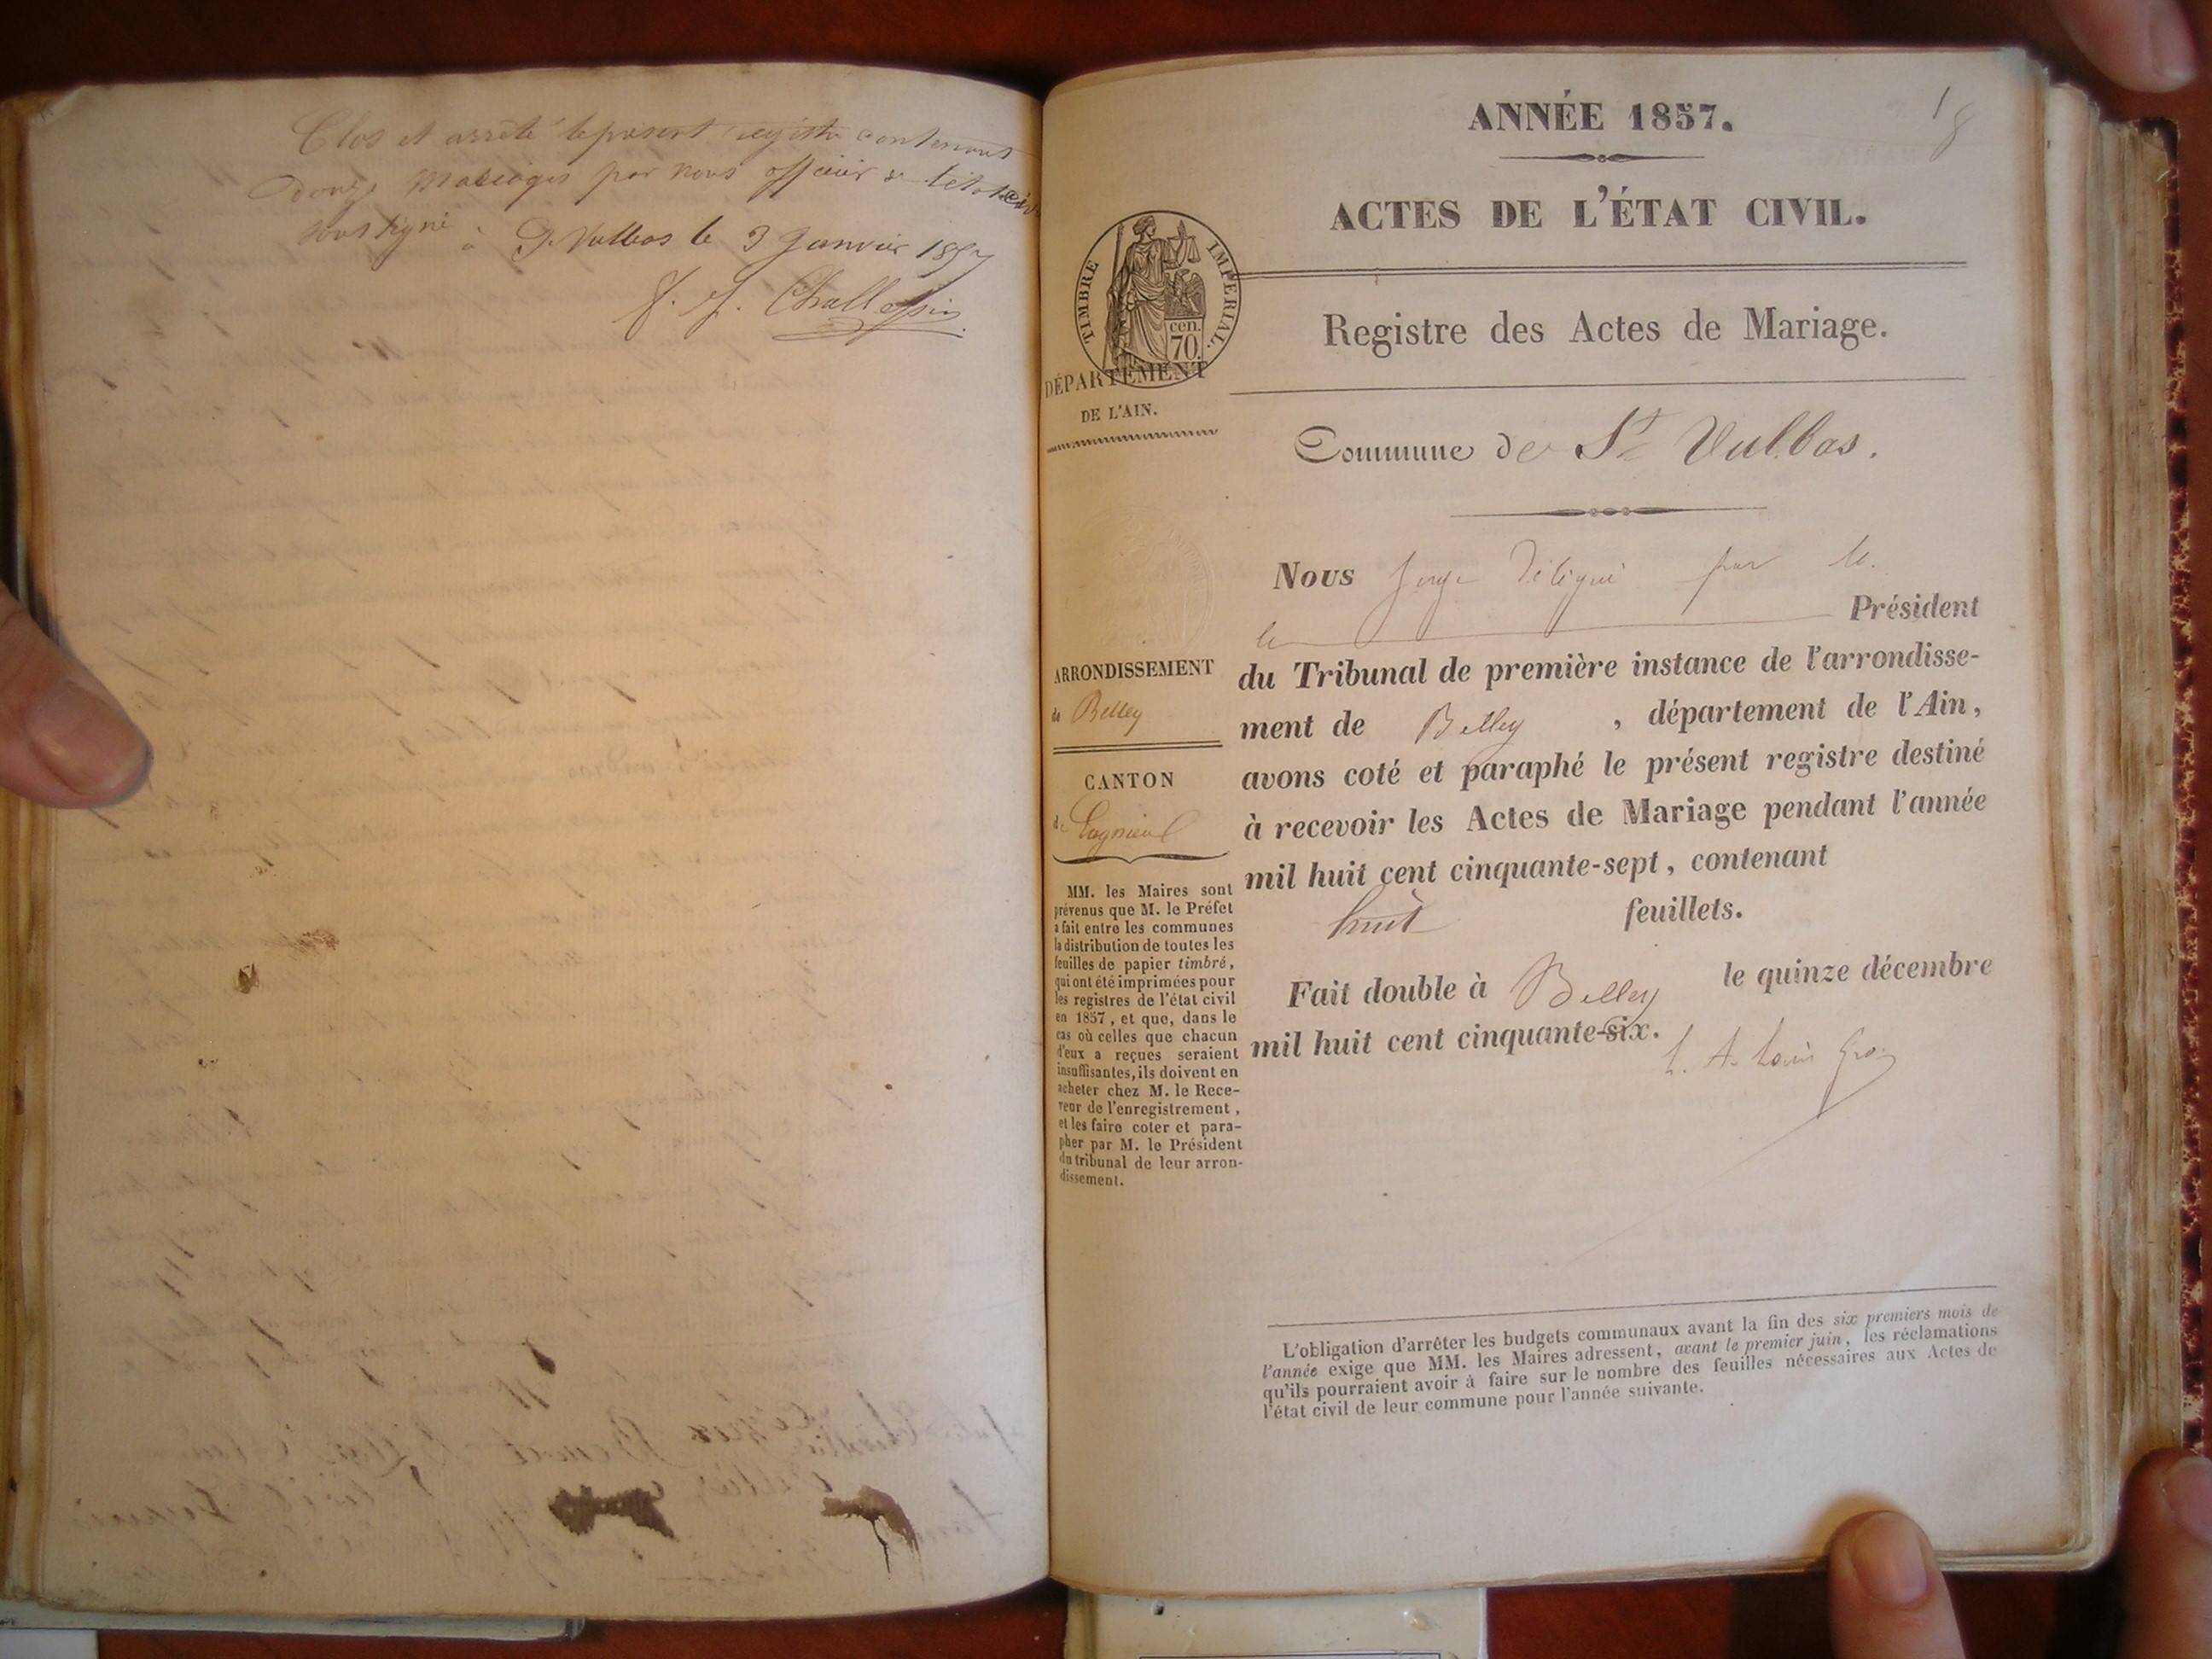 Clos et arrêté le présent registre contenant
douze Mariages par nous officier de l'état civil
soussigné à St Vulbas le 3 Janvier 1857
ANNÉE 1857.
1
8
ACTES DE L'ÉTAT CIVIL.
TIMBRE IMPÉRIAL.
cen.
70.
Registre des Actes de Mariage.
DÉPARTEMENT
DE L'AIN.
Commune de St Vulbas.
Nous Juge Délégué par M.
le Président
du Tribunal de première instance de l'arrondisse-
ment de Belley, département de l'Ain,
avons coté et paraphé le présent registre destiné
à recevoir les Actes de Mariage pendant l'année
mil huit cent cinquante-sept, contenant
huit feuillets.
Fait double à Belley le quinze décembre
mil huit cent cinquante-six.
ARRONDISSEMENT
de Belley
CANTON
de Lagnieu
MM. les Maires sont
prévenus que M. le Préfet
a fait entre les communes
la distribution de toutes les
feuilles de papier timbré,
qui ont été imprimées pour
les registres de l'état civil
en 1857, et que, dans le
cas où celles que chacun
d'eux a reçues seraient
insuffisantes, ils doivent en
acheter chez M. le Rece-
veur de l'enregistrement,
et les faire coter et para-
pher par M. le Président
du tribunal de leur arron-
dissement.
L'obligation d'arrêter les budgets communaux avant la fin des six premiers mois de
l'année exige que MM. les Maires adressent, avant le premier juin, les réclamations
qu'ils pourraient avoir à faire sur le nombre des feuilles nécessaires aux Actes de
l'état civil de leur commune pour l'année suivante.